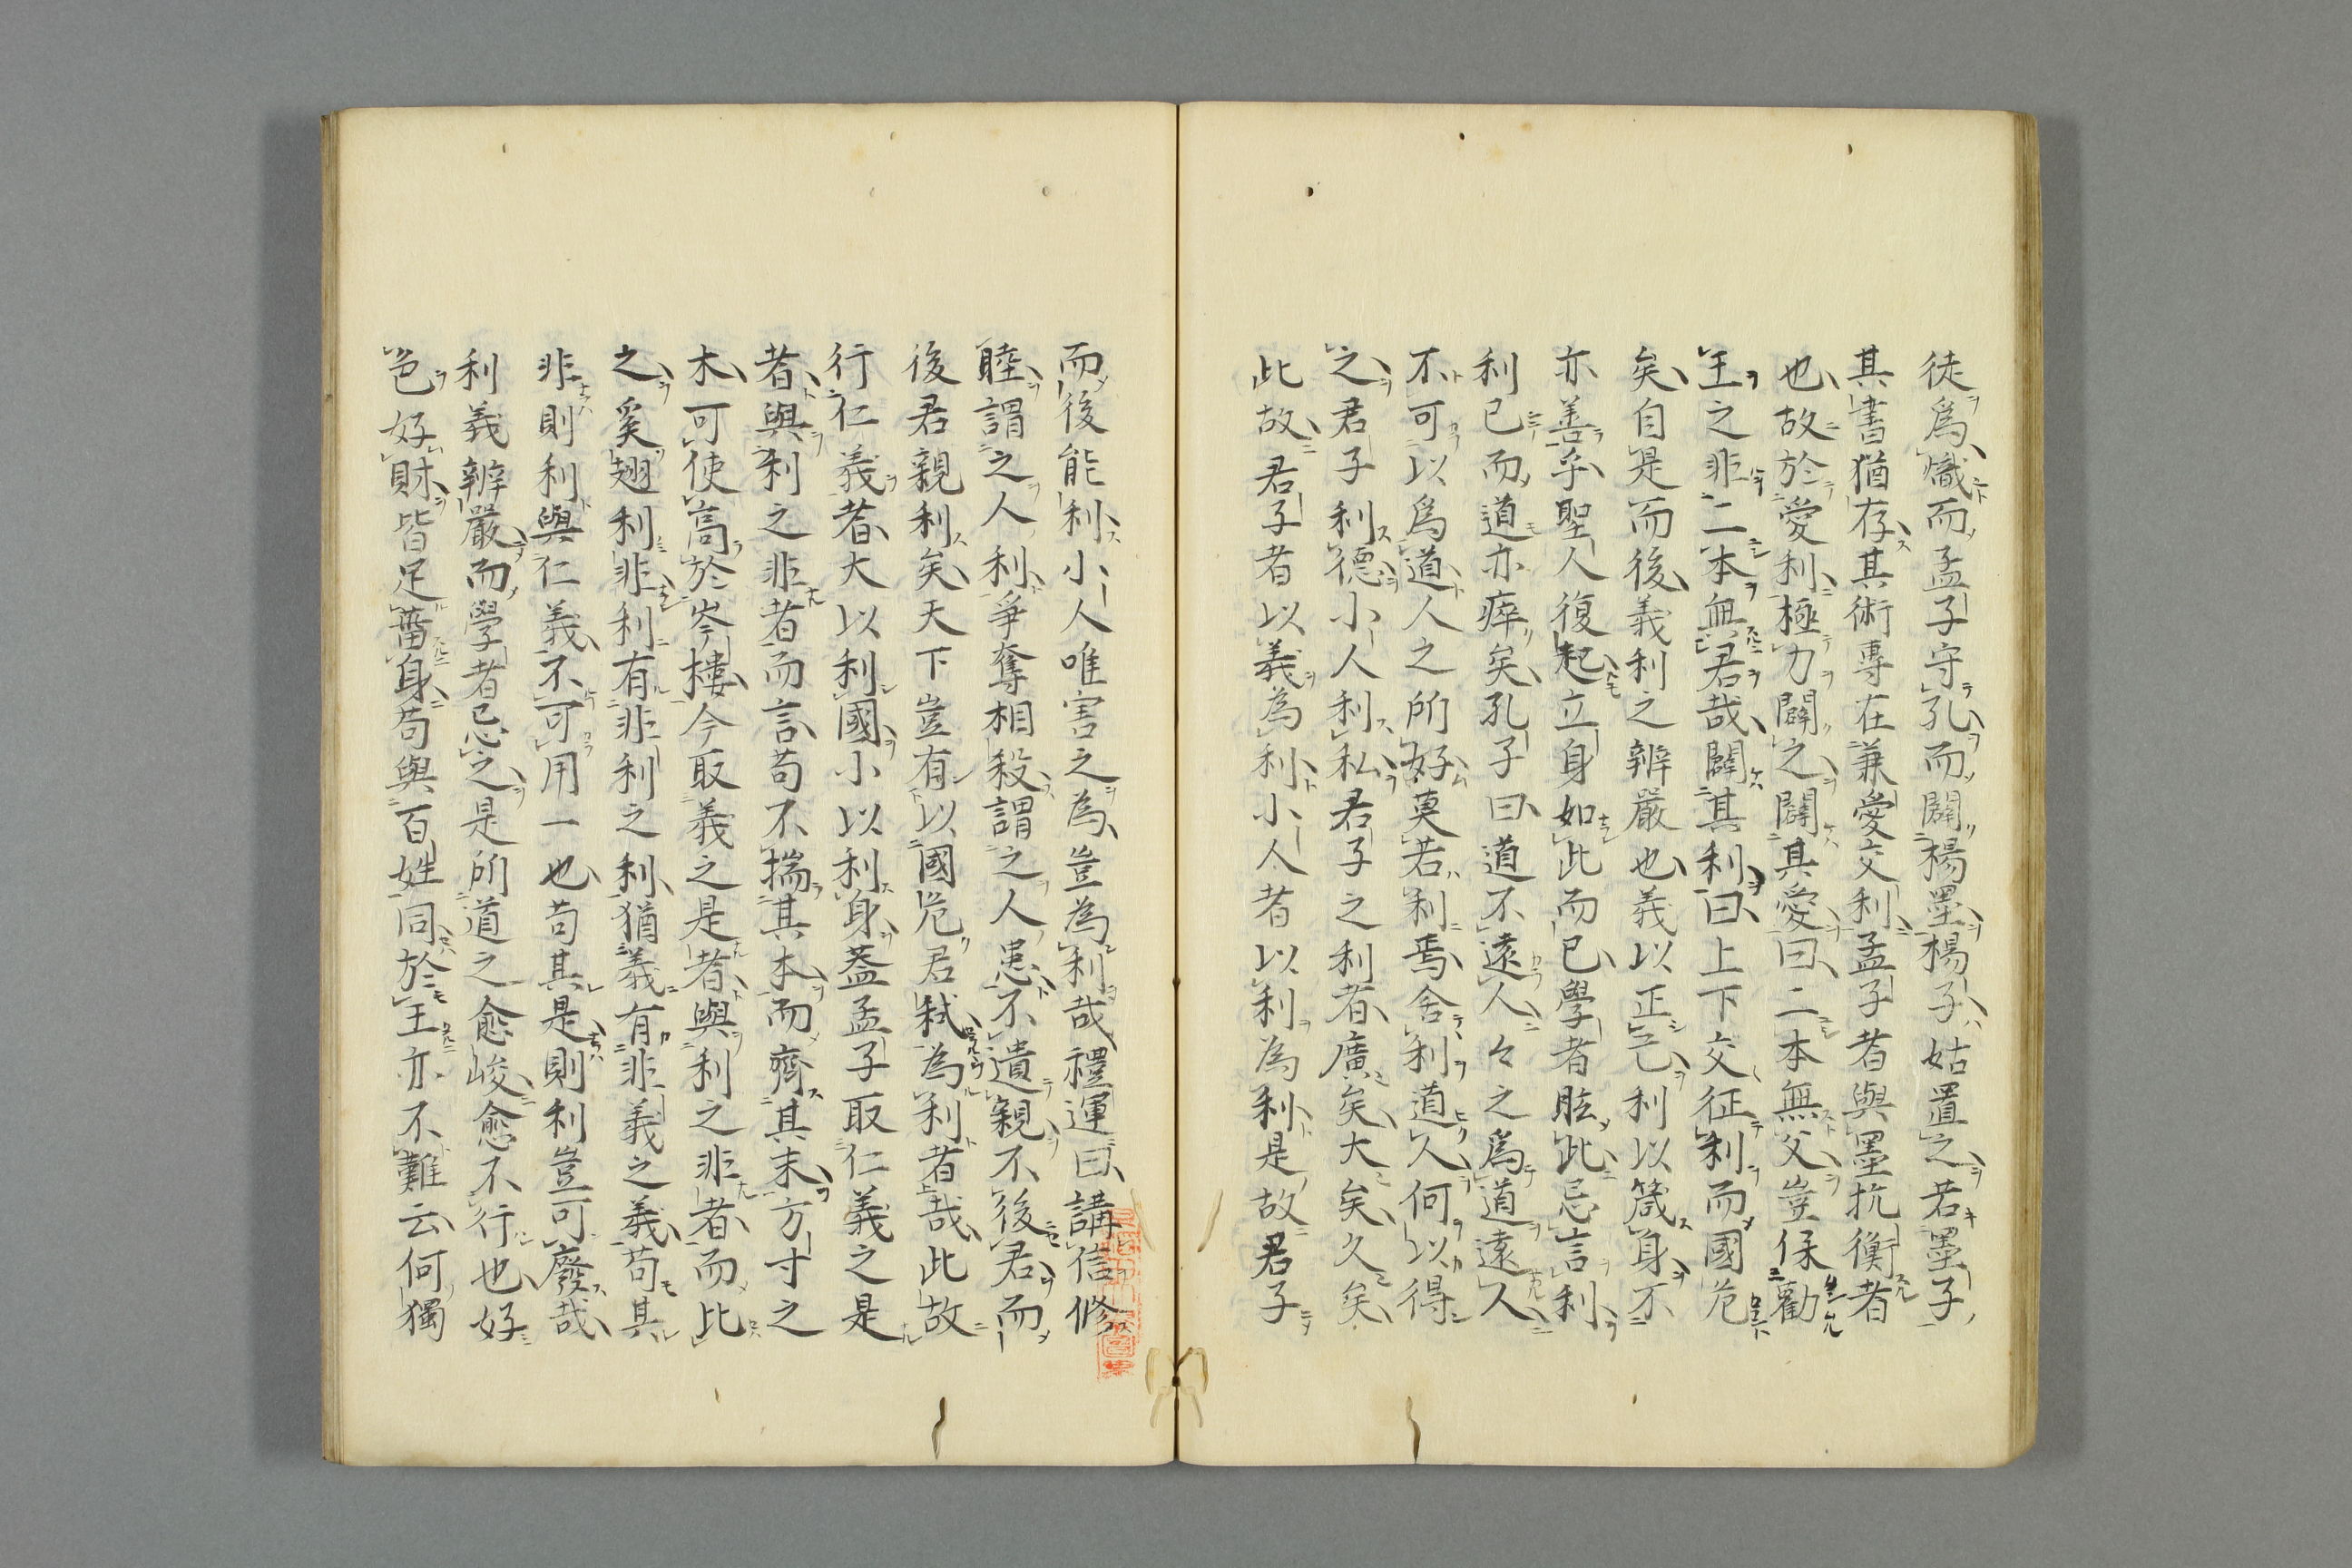 徒爲熾而孟子守孔而闢楊墨楊子姑置之若墨子
其書猶存其術專在兼愛交利孟子者與墨抗衡者
也故於愛利極力闢之闢其愛曰二本無父豈保勸
王之非二本無君哉闢其利曰上下交征利而國危
矣自是而後義利之辨嚴也義以正己利以箴身不
亦善乎聖人復起立身如此而已學者眩此忌言利
利已而道亦瘁矣孔子曰道不遠人々之爲道遠人
不可以爲道人之所好莫若利焉舍利道人何以得
之君子利德小人利私君子之利者廣矣大矣久矣
此故君子者以義為利小人者以利為利是故君子
而後能利小人唯害之為豈為利哉禮運曰講信修
睦謂之人利爭奪相殺謂之人患不遺親不後君而
後君親利矣天下豈有以國危君弑為利者哉此故
行仁義者大以利國小以利身蓋孟子取仁義之是
者與利之非者而言苟不揣其本而齊其末方寸之
木可使高於岑樓今取義之是者與利之非者而比
之奚翅利非利有非利之利猶義有非義之義苟其
非則利與仁義不可用一也苟其是則利豈可廢哉
利義辨嚴而學者忌之是所道之愈峻愈不行也好
色好財皆足葘身苟與百姓同於王亦不難云何獨